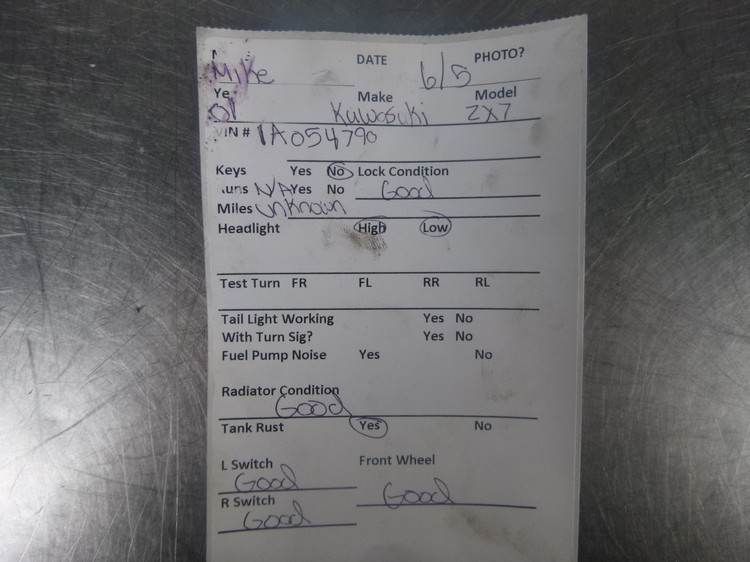 DATE PHOTO?
Mike 6/5
Ye Make Model
01 Kuwasuki ZX7
VIN # 1A054790
Keys Yes No Lock Condition
uns N/A Yes No Good
Miles unknown
Headlight High Low
Test Turn FR FL RR RL
Tail Light Working Yes No
With Turn Sig? Yes No
Fuel Pump Noise Yes No
Radiator Condition
Good
Tank Rust Yes No
L Switch Front Wheel
Good
R Switch Good
Good